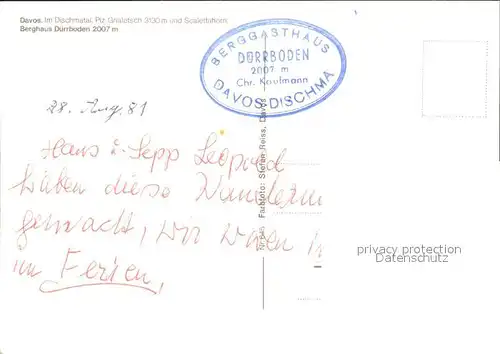 Davos. Im Dischmatal. Piz Grialetsch 3130 m und Scalettahorn.
Berghaus Dürrboden 2007 m
BERGGASTHAUS
DÜRRBODEN
2007 m
Chr. Kaufmann
DAVOS-DISCHMA
28. Aug. 81
Hans u. Sepp Leopold
haben diese
gemacht, wir waren
im Ferien.
Farbfoto: Stefan Reiss, Davos
privacy protection
Datenschutz